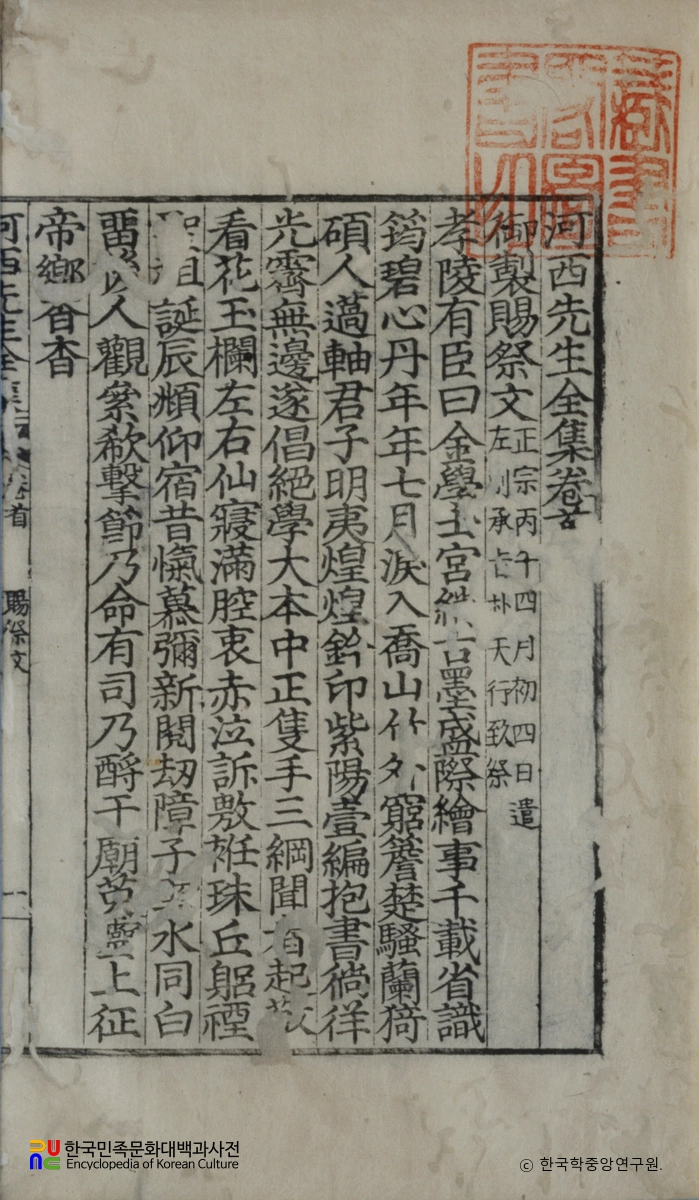 河西先生全集卷首
御製賜祭文
正宗丙午四月初四日遣
左承朴天行致祭
孝陵有臣曰金學士宮墨盛際繪事千載省識
筠碧心丹年年七月淚入喬山竹外窮簷楚騷蘭猗
碩人薖軸君子明夷煌煌鈐印紫陽壹編抱書徜徉
光霽無邊遂倡絕學大本中正隻手三綱聞者起敬
看花玉欄左右仙寢滿腔衷赤泣訴敷衽珠丘躬禋
聖祖誕辰頫仰宿昔愾慕彌新閱劫障子水同白
畱以人觀象欷擊節乃命有司乃酹于廟英靈上征
帝鄉杳杳
河西先生全集 卷首 賜祭文 一
한국민족문화대백과사전
Encyclopedia of Korean Culture
© 한국학중앙연구원.